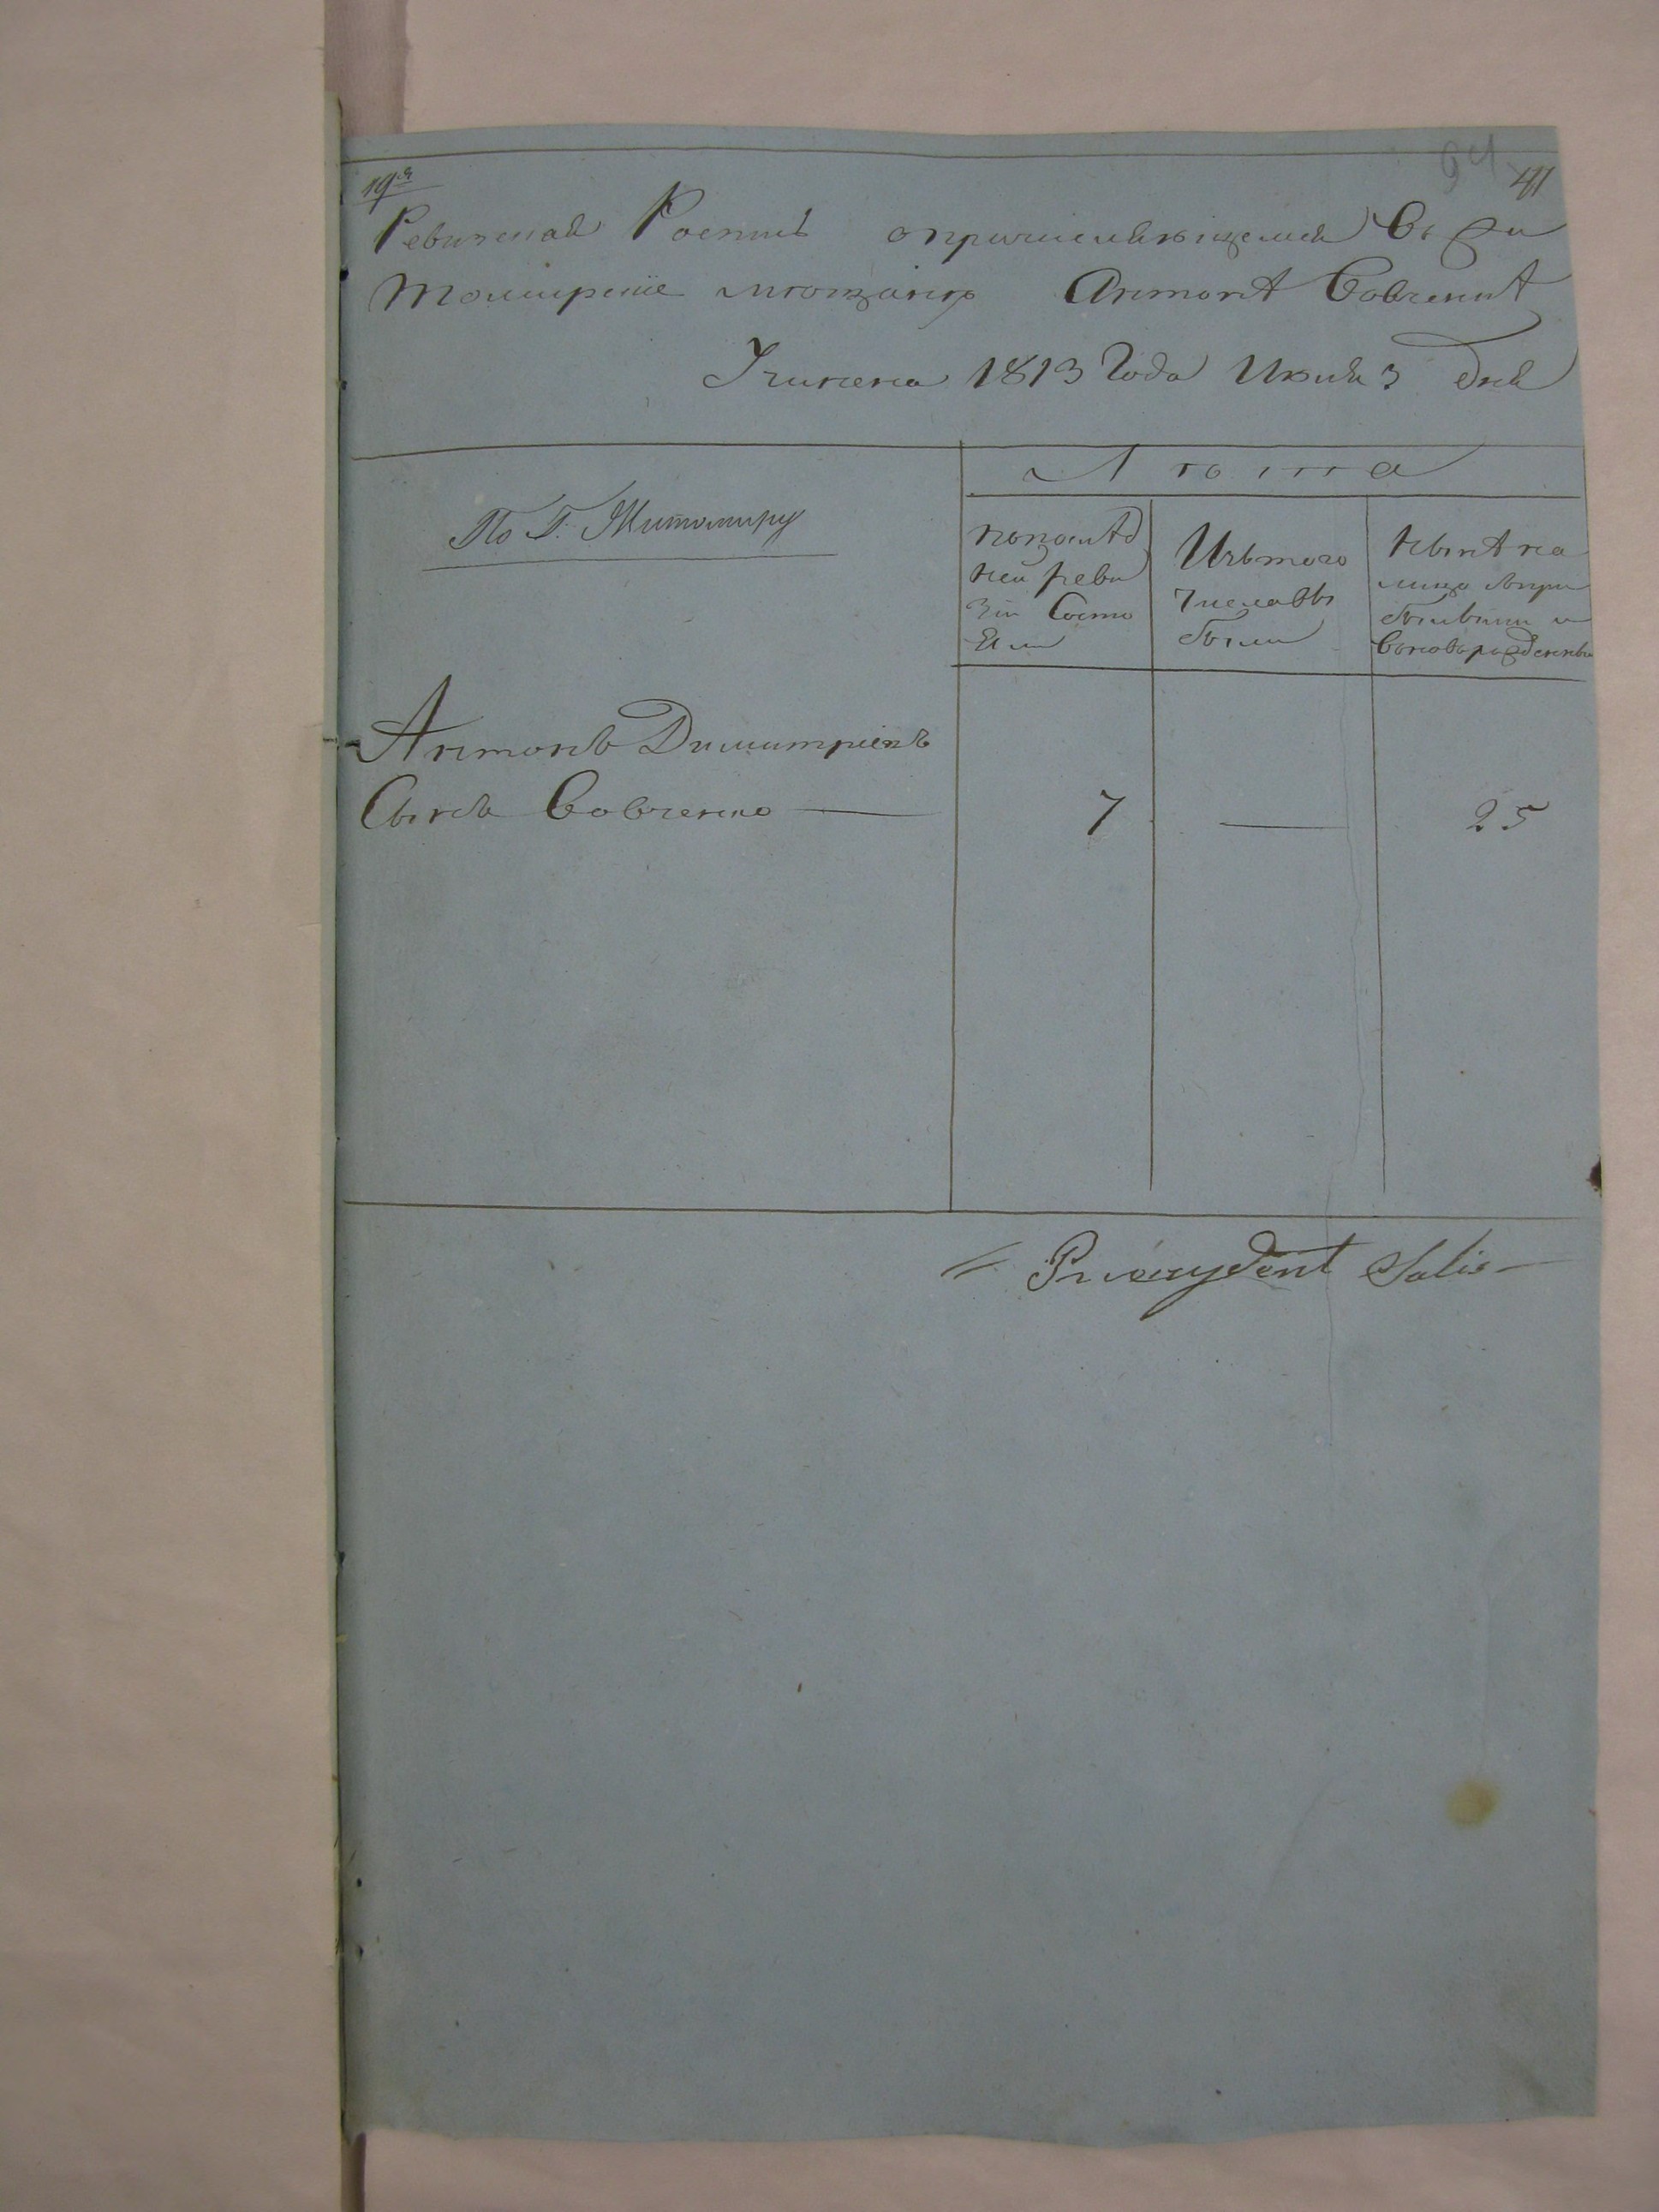 19я
94 41
Ревижская Роспись опричисляющемся Въ Жи
Томирские мѣщане Антонѣ Савченкѣ
Учинена 1813 Года Июня 3 дня
Лѣта
По Г. Житомиру
попослѣд
ней реви
зіи Состо
Яли
Изътого
Числа Вы
были
Нынѣ на
лицо съпри
бывшими и
вновьрожденны
Антонъ Димитріевъ
Сынъ Савченко —
7 — 25
Prezydent Salis